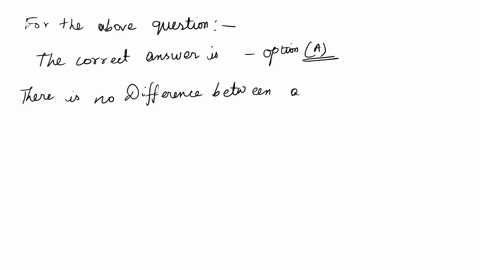 For the above question:—
The correct answer is - option (A)
There is no Difference between a